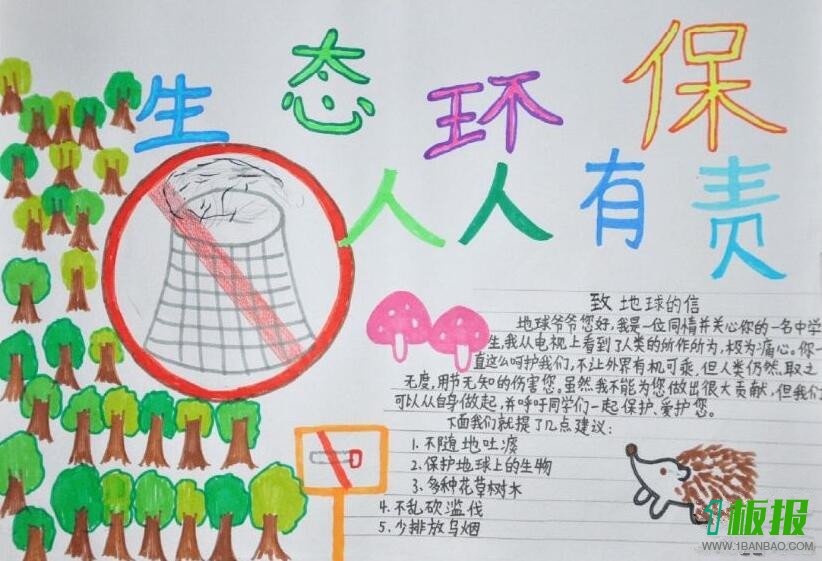 生态环保
人人有责
致地球的信
地球爷爷您好,我是一位同情并关心你的一名中学
生,我从电视上看到了人类的所作所为,极为痛心。你一
直这么呵护我们,不让外界有机可乘,但人类仍然,取之
无度,用节无知的伤害您。虽然我不能为您做出很大贡献,但我们
可以从自身做起,并呼吁同学们一起保护、爱护您。
下面我们就提了几点建议:
1. 不随地吐痰
2. 保护地球上的生物
3. 多种花草树木
4. 不乱砍滥伐
5. 少排放乌烟
1板报
WWW.1BANBAO.COM